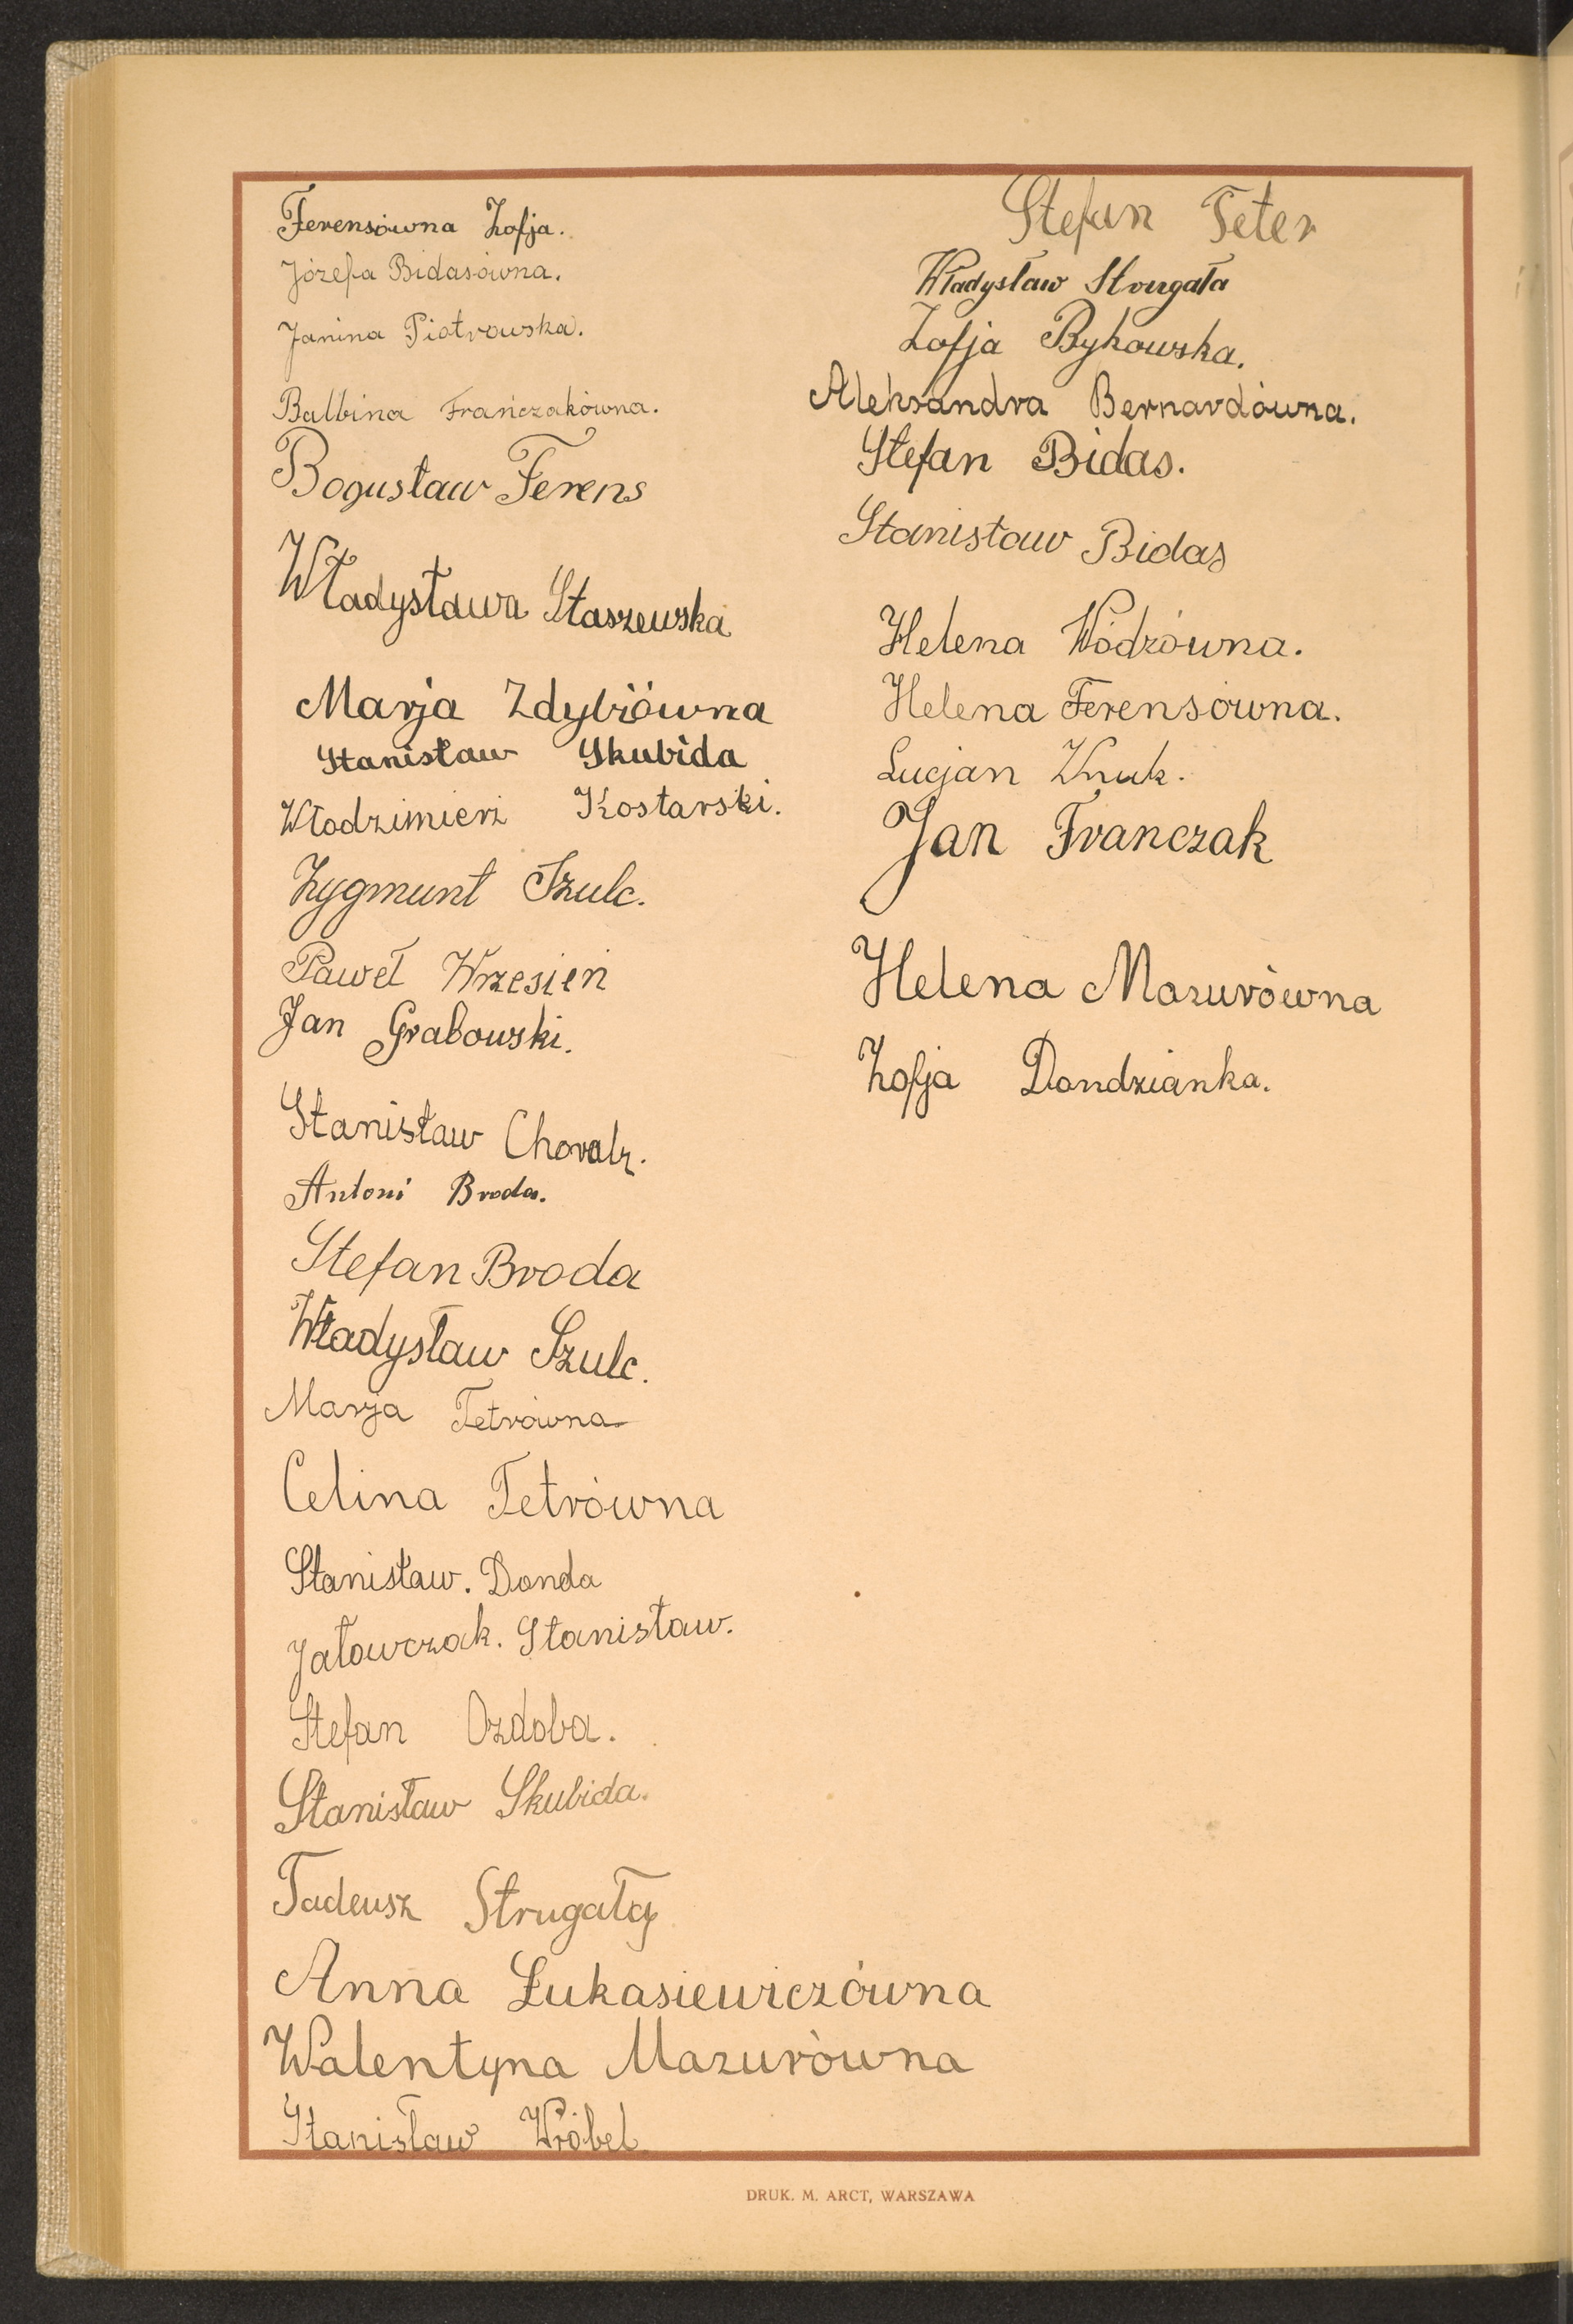 Ferensówna Zofja.
Józefa Bidasówna.
Janina Piotrowska.
Balbina Frańczakówna.
Bogusław Ferens
Władysława Staszewska
Marja Zdybiówna
Stanisław Skubida
Włodzimierz Kostarski.
Zygmunt Szulc.
Paweł Wrzesień
Jan Grabowski.
Stanisław
Antoni Broda.
Stefan Broda
Władysław Szulc.
Marja Tetrówna
Celina Tetrówna
Stanisław. Donda
Jatowczak. Stanisław.
Stefan Ozdoba.
Stanisław Skubida.
Tadeusz Strugała
Anna Łukasiewiczówna
Walentyna Mazurówna
Stanisław Wróbel
Stefan Teter
Władysław Strugała
Zofja Bykowska.
Aleksandra Bernardówna.
Stefan Bidas.
Stanisław Bidas
Helena Wódzówna.
Helena Ferensówna.
Lucjan Wnuk.
Jan Franczak
Helena Mazurówna
Zofja Dondzianka.
DRUK. M. ARCT, WARSZAWA